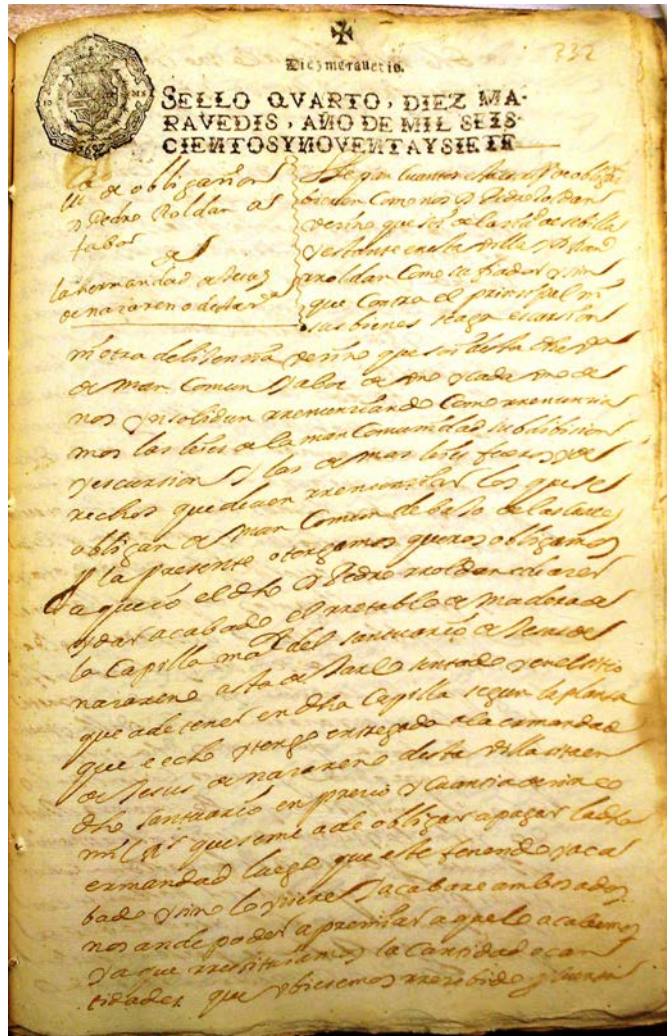 232
Diez marauedis.
SELLO QVARTO, DIEZ MA-
RAVEDIS, AÑO DE MIL SEIS-
CIENTOS Y NOVENTA Y SIETE
de obligaҫion
D Pedro Roldan as
fabor
de
la hermandad de Jesus
de nazareno desta
Sepan cuantos
bieren Como nos D Pedro Roldan
vecino que soi de la de sebilla
y estante en esta billa y D
rroldan Como su fiador y sin
que Contra el prinsipal ni
sus bienes se aga escursion
ni otra delisensia vecino que soi desta dha
de man Comun y a bos de uno y cada uno de
nos ynsolidun rrenunsiando Como rrenunsia
mos las leies de la man Comunidad su dibision
y escursion y las demas leies fueros y de
rechos que deuen rrenunsiar los que se
obligan de man Comun debajo de las cuales
la presente otorgamos que nos obligamos
a que io el dho D Pedro rroldan e de aser
y dar acabado el rretable de madera de
la Capilla maor del santuario de Jesus de
nazareno asta de sentado en el sitio
que a de tener en dha Capilla segun la planta
que e echo y tengo entregada a la ermandad
de Jesus de nazareno desta billa sita en
dho santuario en presio y Cuantia de
mil que se me a de obligar a pagar la dha
ermandad luego que este fenesido y aca
bado y si no lo ysiere y acabare ambos a dos
nos an de poder apremiar a que lo acabemos
y a que rrestituiamos la Cantidad o can
tidades que ubiesemos rresibido